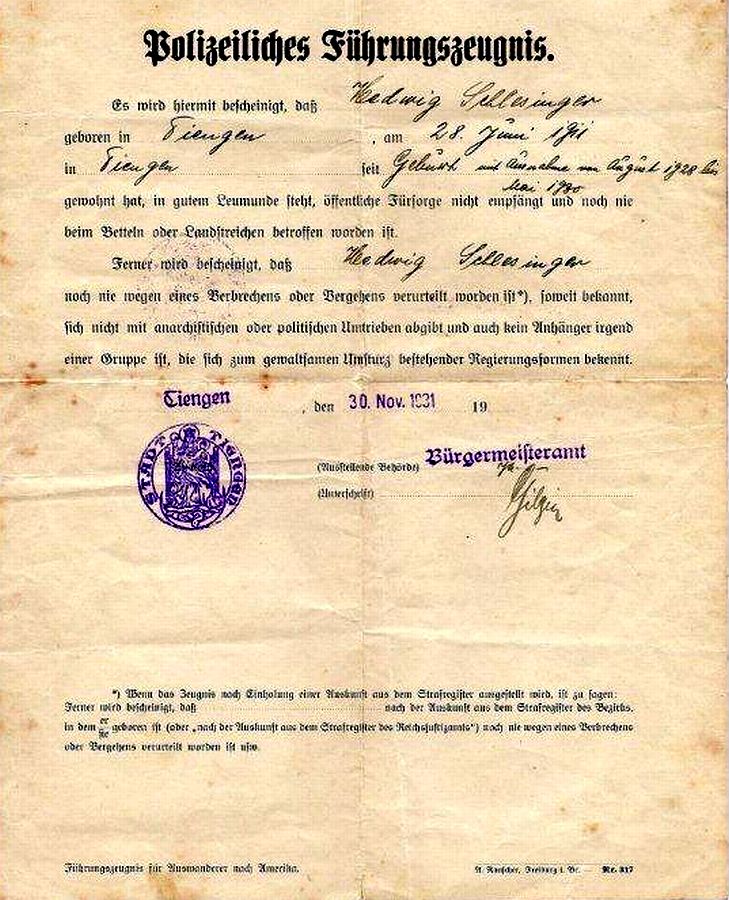 Polizeiliches Führungszeugnis.
Es wird hiermit bescheinigt, daß Hedwig Schlesinger
geboren in Tiengen, am 28. Juni 1911
in Tiengen seit Geburt mit Ausnahme von August 1928 bis
Mai 1930
gewohnt hat, in gutem Leumunde steht, öffentliche Fürsorge nicht empfängt und noch nie
beim Betteln oder Landstreichen betroffen worden ist.
Ferner wird bescheinigt, daß Hedwig Schlesinger
noch nie wegen eines Verbrechens oder Vergehens verurteilt worden ist*), soweit bekannt,
sich nicht mit anarchistischen oder politischen Umtrieben abgibt und auch kein Anhänger irgend
einer Gruppe ist, die sich zum gewaltsamen Umsturz bestehender Regierungsformen bekennt.
Tiengen, den 30. Nov. 1931 19
STADT TIENGEN
(Ausstellende Behörde) Bürgermeisteramt
(Unterschrift)
*) Wenn das Zeugnis nach Einholung einer Auskunft aus dem Strafregister ausgestellt wird, ist zu sagen:
Ferner wird bescheinigt, daß nach der Auskunft aus dem Strafregister des Bezirks,
in dem er/sie geboren ist (oder „nach der Auskunft aus dem Strafregister des Reichsjustizamts") noch nie wegen eines Verbrechens
oder Vergehens verurteilt worden ist usw.
Führungszeugnis für Auswanderer nach Amerika. A. Rauscher, Freiburg i. Br. — Nr. 317